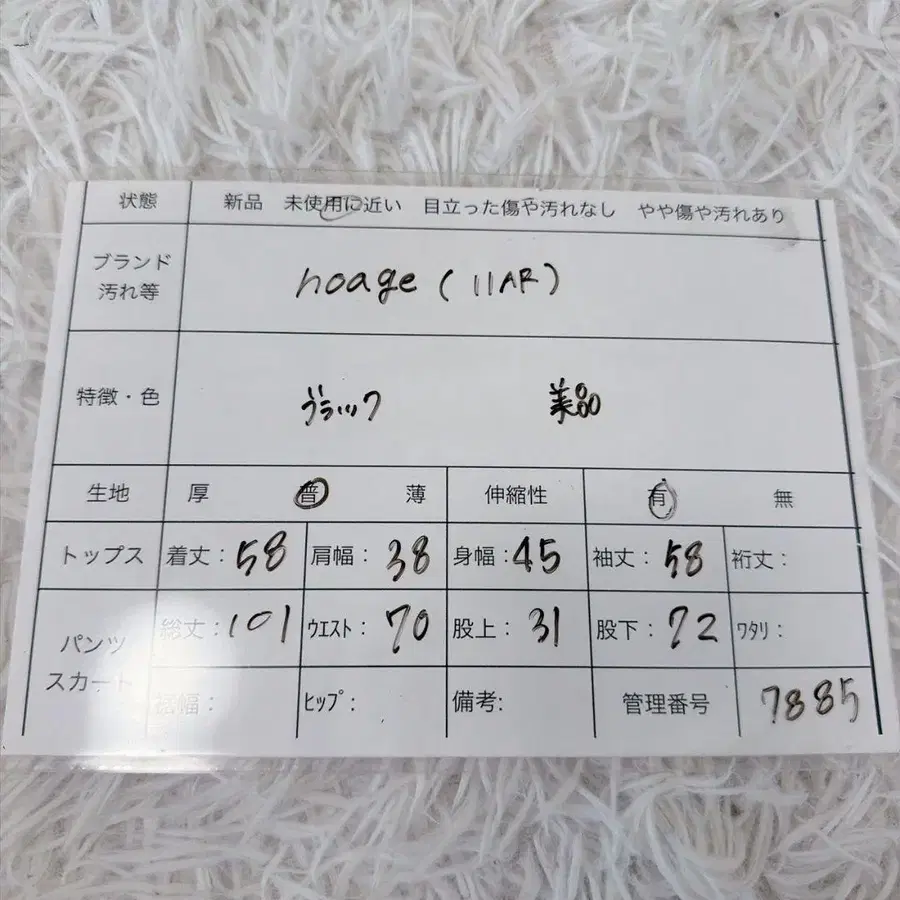 状態 新品 未使用に近い 目立った傷や汚れなし やや傷や汚れあり
ブランド
汚れ等
hoage (11AR)
特徴・色 ブラック 美品
生地 厚 普 薄 伸縮性 有 無
トップス 着丈:58 肩幅:38 身幅:45 袖丈:58 裄丈:
パンツ
スカート
総丈:101 ウエスト:70 股上:31 股下:72 ワタリ:
裾幅: ヒップ: 備考: 管理番号 7885